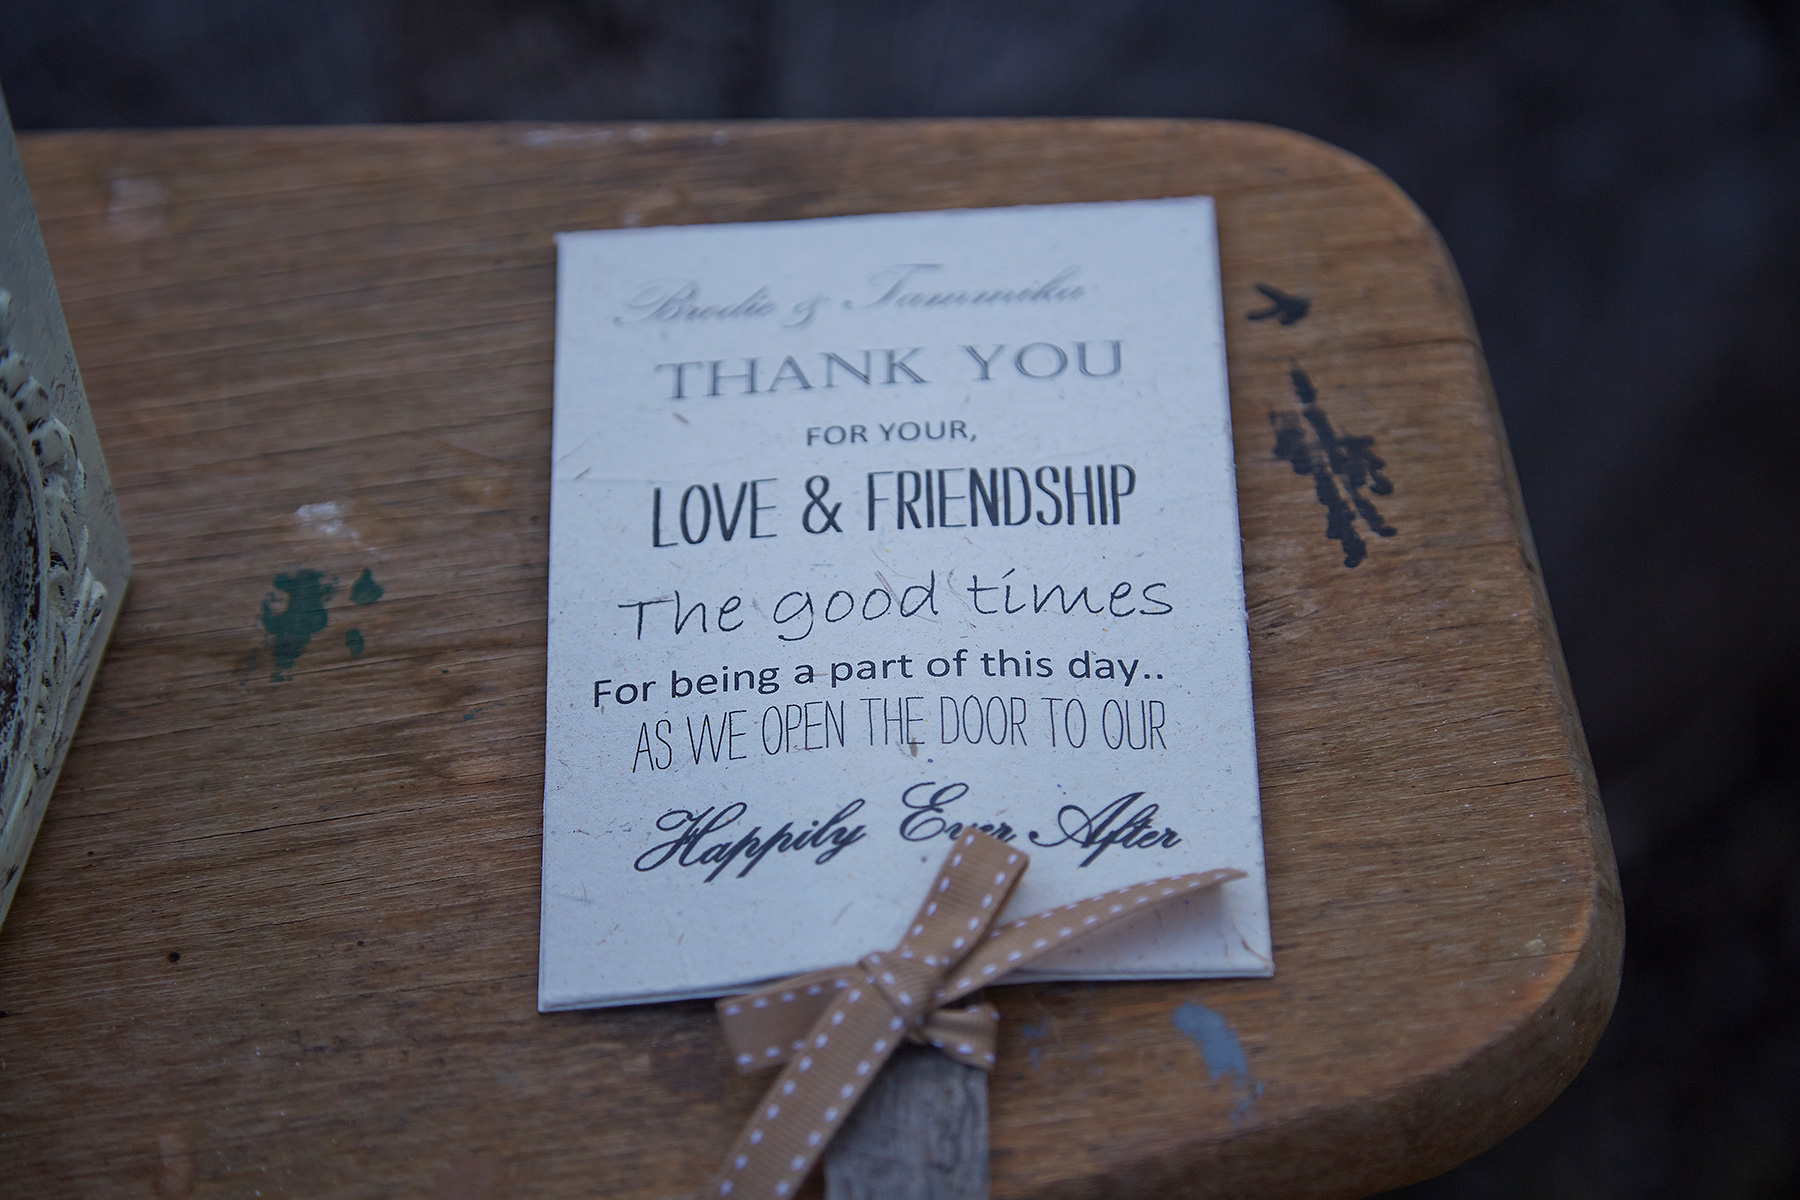 Brodie & Tammika
THANK YOU
FOR YOUR,
LOVE & FRIENDSHIP
The good times
For being a part of this day..
AS WE OPEN THE DOOR TO OUR
Happily Ever After